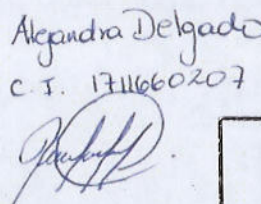 Alejandra Delgado
C.I. 1711660207